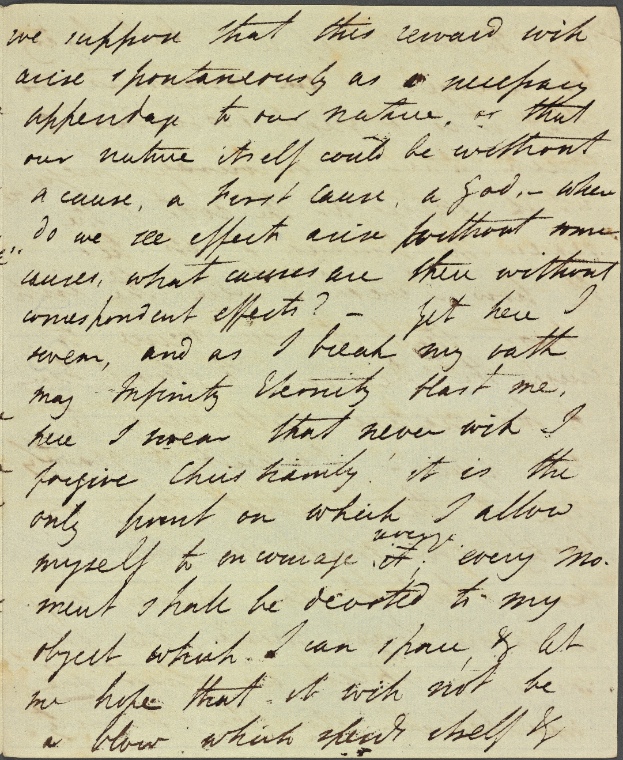 we suppose that this reward will
arise spontaneously as a necessary
appendage to our nature, or that
our nature itself could be without
a cause, a first cause, a God, – when
do we see effects arise without some
causes, what causes are there without
correspondent effects? – Yet here I
swear, and as I break my oath
may Infinity Eternity blast me,
here I swear that never will I
forgive Christianity! it is the
only point on which I allow
myself to encourage revenge
it; every mo-
ment shall be devoted to my
object which I can spare, & let
me hope that it will not be
a blow which spends itself &